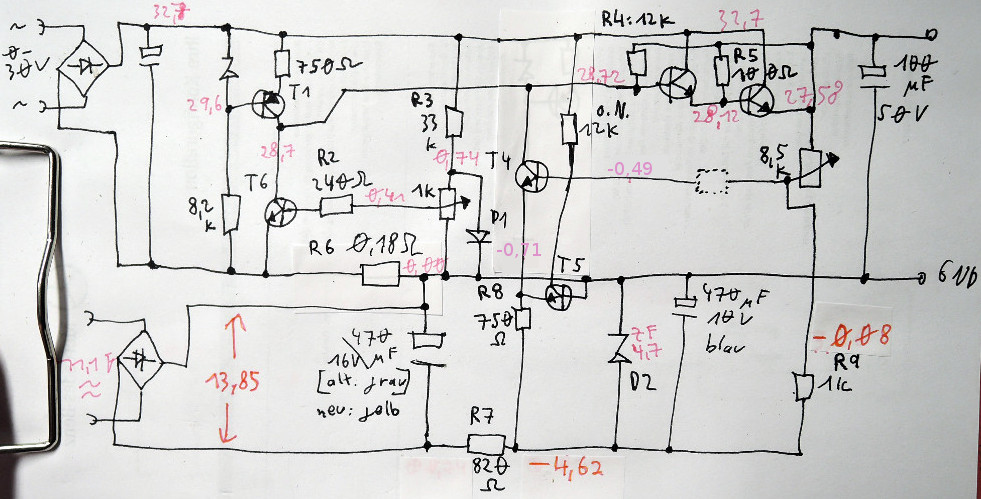 ~
0-
30V
~
32,7
29,6
750Ω
T1
28,7
T6
8,2
k
R2
240Ω
0,41
R3
33
k
0,74
1k
D1
R6 0,18Ω
0,00
R4:12k
32,7
28,72
o.N.
12k
R5
100Ω
28,12
27,58
100
µF
50V
T4
-0,49
8,5
k
-0,71
T5
R8
750
Ω
ZF
4,7
D2
470 µF
10V
blau
GND
-0,08
R9
1k
≈
13,85
470
16V µF
[alt. grau]
neu: gelb
R7
820
Ω
-4,62